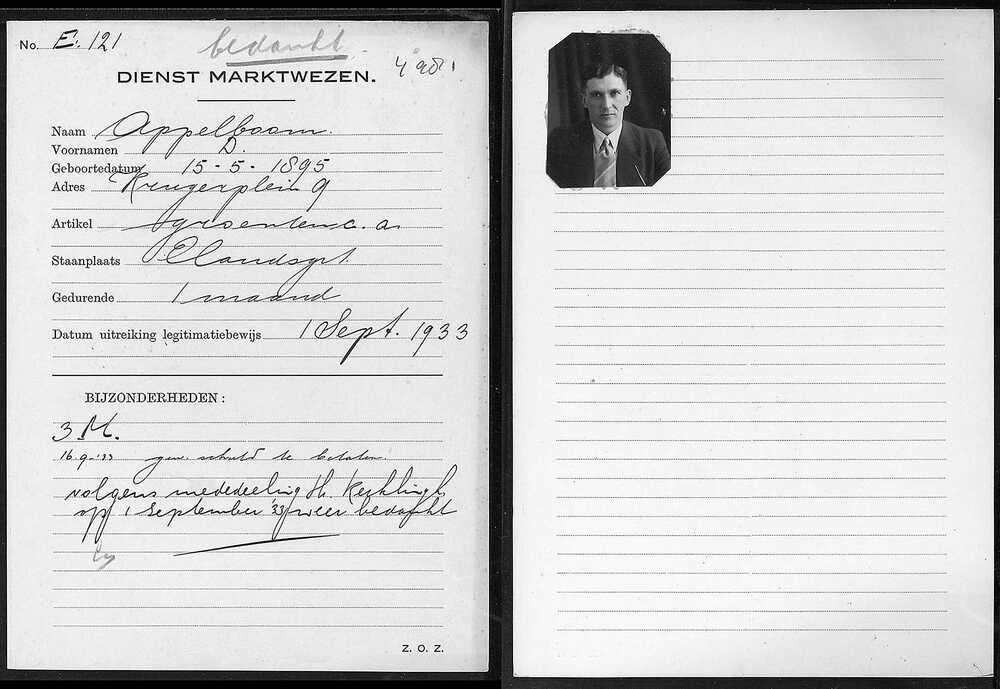 No. E. 121
bedankt
DIENST MARKTWEZEN.
Naam Appelboom.
Voornamen D.
Geboortedatum 15-5-1895
Adres Krugerplein 9
Artikel groenten c.a.
Staanplaats Elandsgrt.
Gedurende 1 maand
Datum uitreiking legitimatiebewijs 1 Sept. 1933
BIJZONDERHEDEN:
3 M.
16-9-'33 gew. schuld te betalen.
volgens mededeeling H.
op 1 September '33 weer bedankt
Z. O. Z.